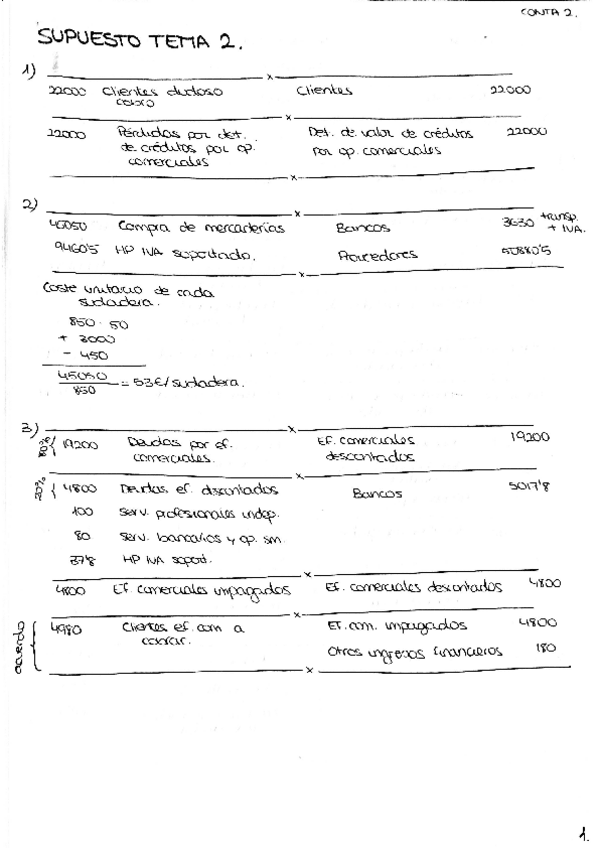 CONTA 2.
SUPUESTO TEMA 2.
1)
x
22000 Clientes dudoso Clientes 22000
cobro
x
22000 Pérdidas por det. Det. de valor de créditos 22000
de créditos por op. por op. comerciales
comerciales
x
2)
x
45050 Compra de mercaderías Bancos 3630 transp. + IVA.
9460'5 HP IVA soportado. Proveedores 50880'5
x
Coste unitario de cada
sudadera.
850 · 50
+ 3000
- 450
45050
850
= 53€/sudadera.
3)
x
80% { 19200 Deudas por ef. Ef. comerciales 19200
comerciales. descontados
x
20% { 4800 Deudas ef. descontados Bancos 5017'8
100 Serv. profesionales indep.
80 Serv. bancarios y op. sm.
37'8 HP IVA soport.
x
4800 Ef. comerciales impagados Ef. comerciales descontados 4800
x
acuerdo { 4980 Clientes ef. com a Ef. com. impagados 4800
cobrar. Otros ingresos financieros 180
x
1.